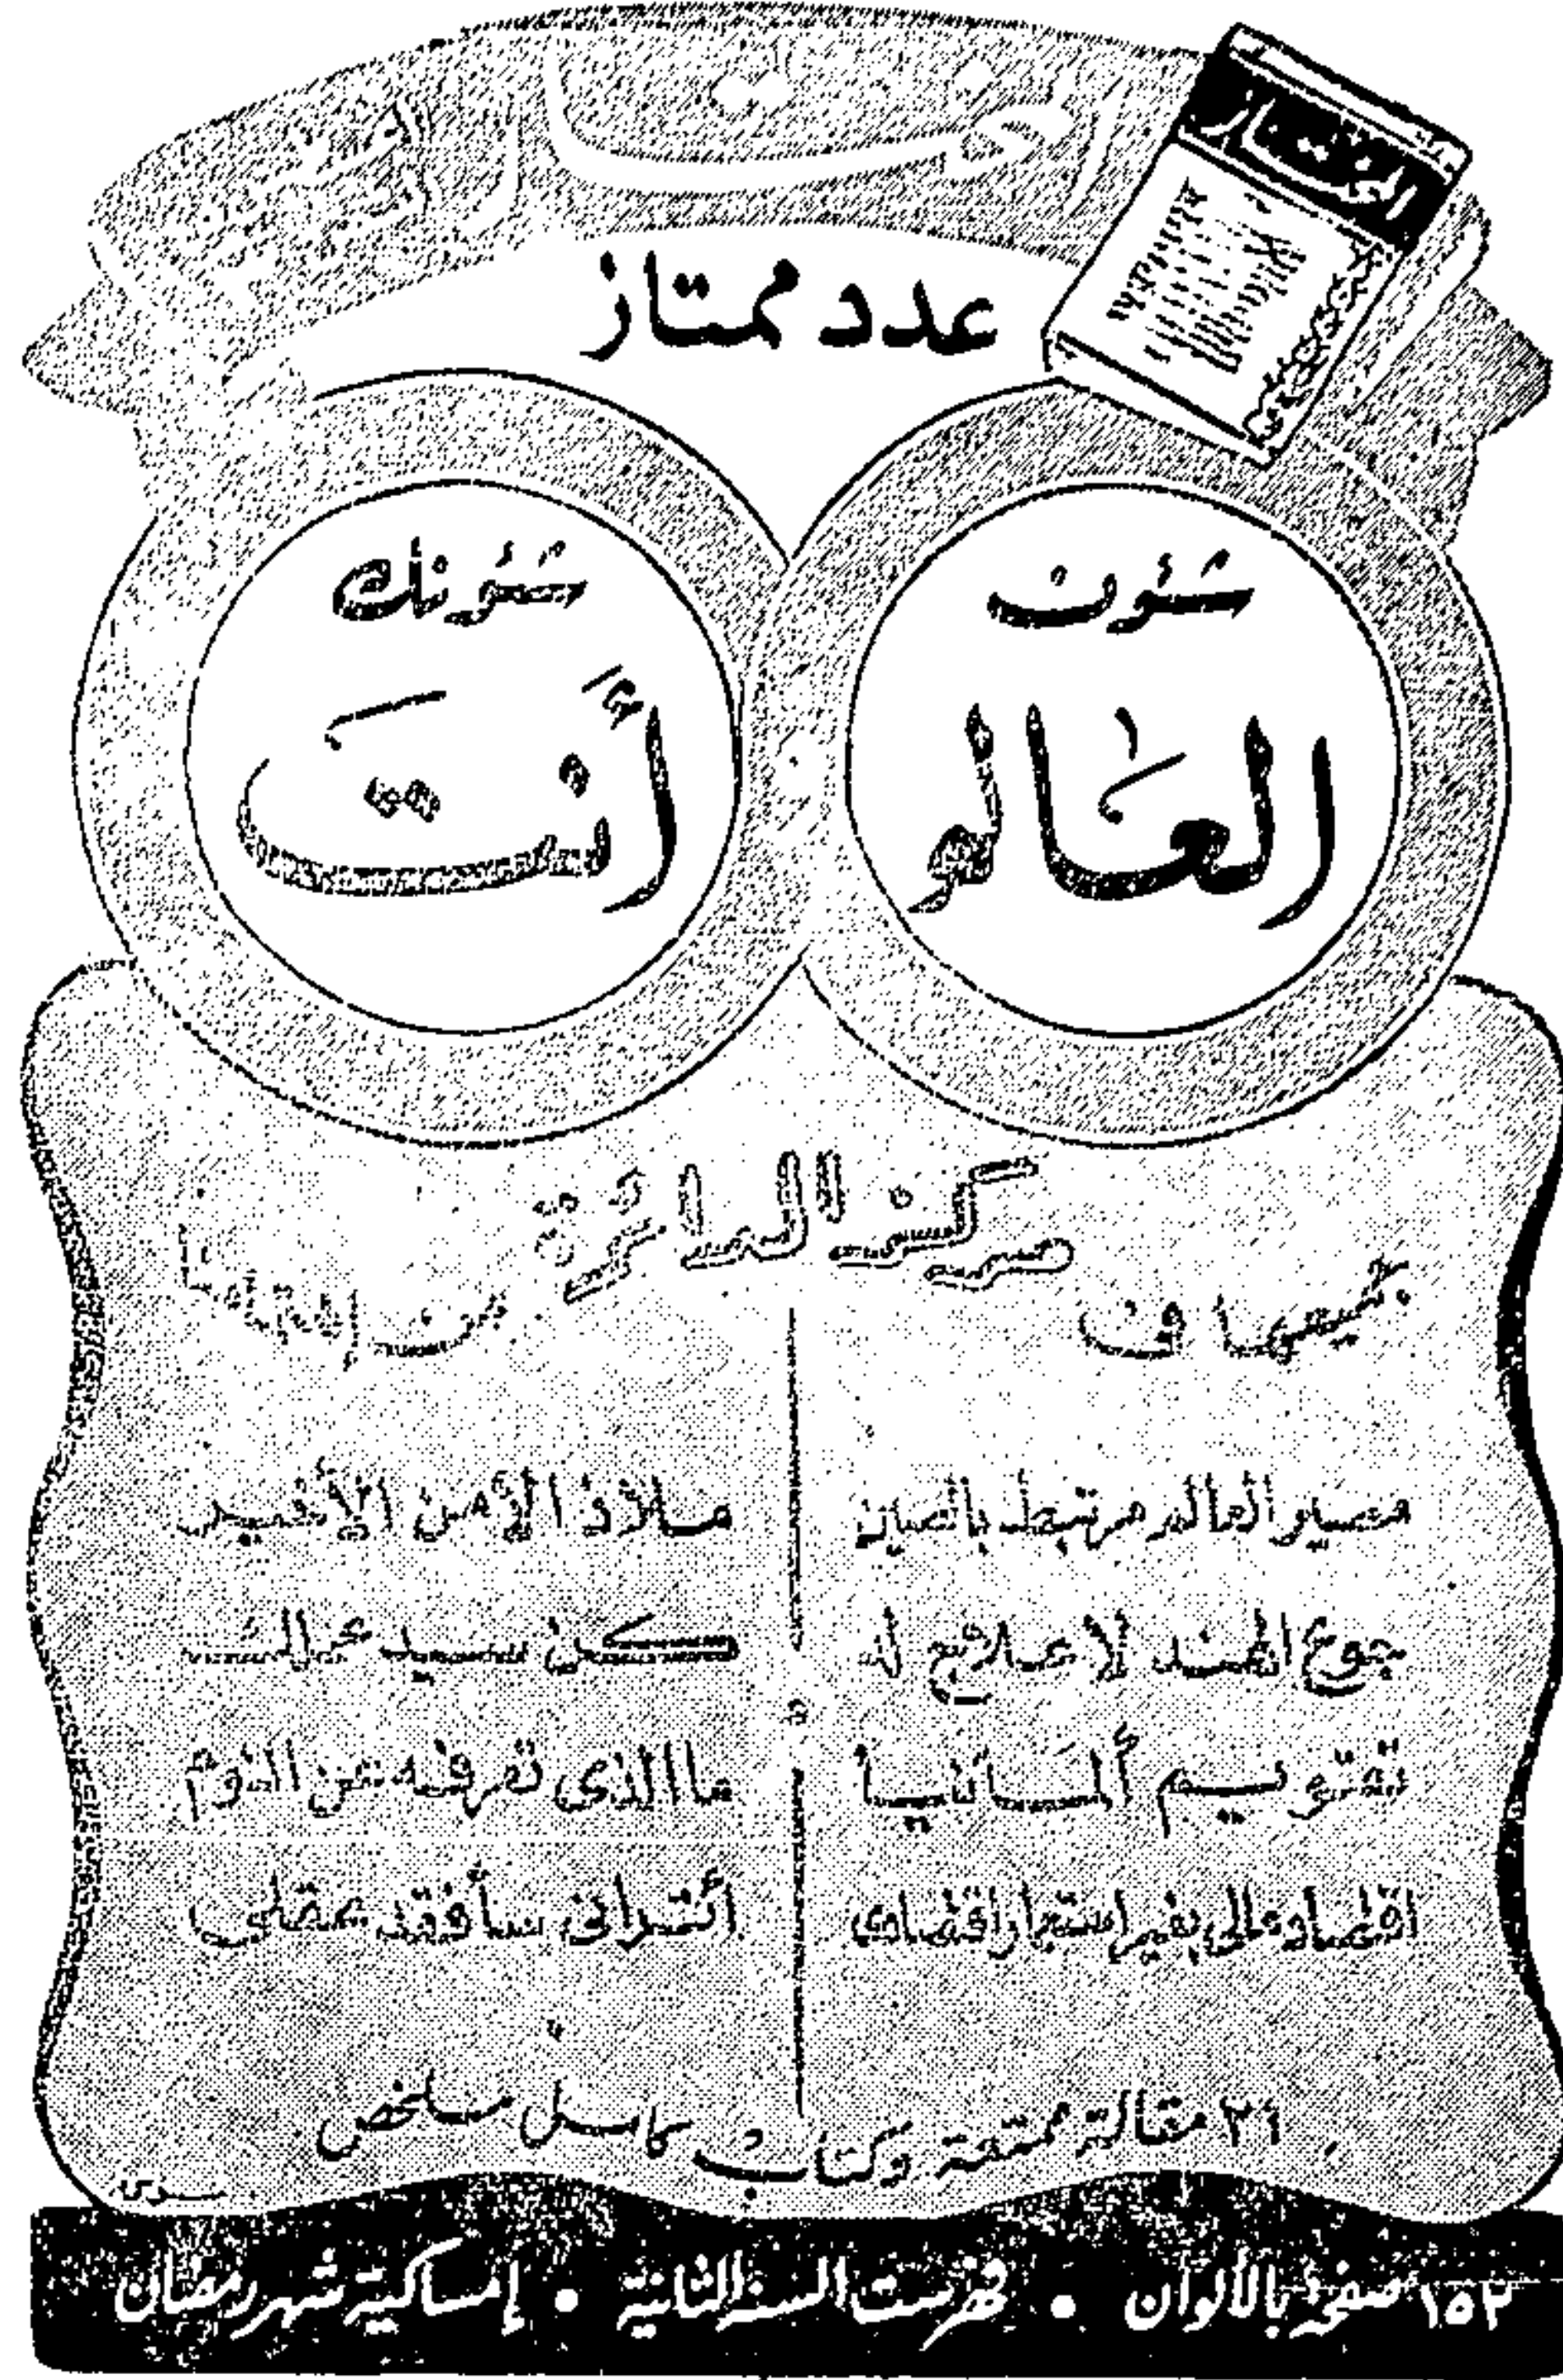 المختار
عدد ممتاز
شئون
العالم
شئونك
أنتَ
مركز الدائرة
مصير العالم مرتبط بالصين
جوع الهند لا علاج له
تقويم ألمانيا
اقتصاد عالمى بغير استعمار اقتصادى
ملاذ الأمن الأخير
كن سيد عملك
ما الذى تعرفه عن النوم
أتترانى سأفقد عقلى
٢١ مقالة ممتعة وكتاب كامل ملخص
١٥٢ صفحة بالألوان • فهرست السنة الثانية • إمساكية شهر رمضان